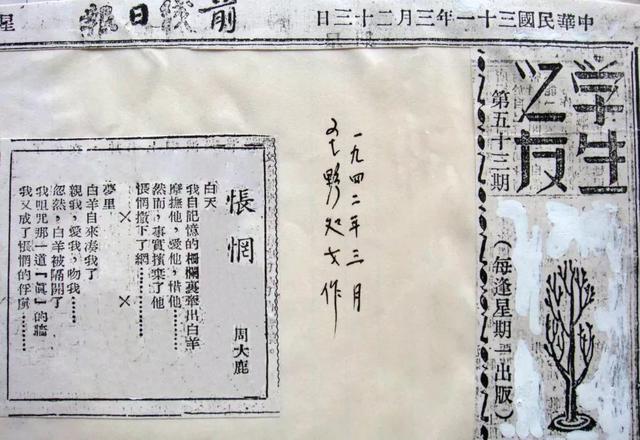 中華民國三十一年三月二十三日
前綫日報
星
学生
之友
第五十三期
(每逢星期一出版)
一九四二年三月
处女作
悵惘
周大鹿
白天
我自記憶的柵欄裏牽出白羊
摩撫他,愛他,惜他……
然而,事實擯棄了他
悵惘撒下了網………
× ×
夢里
白羊自來湊我了
親我,愛我,吻我……
忽然,白羊被隔開了
我咀咒那一道『眞』的牆
我又成了悵惘的俘虜………